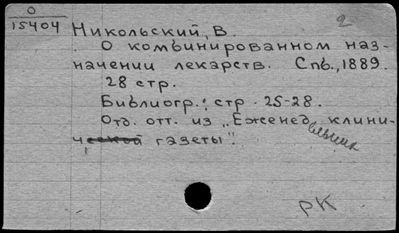 0
15404
Никольский, В.
2
О комбинированном наз-
начении лекарств. Спб., 1889.
28 стр.
Библиогр.: стр. 25-28.
Отд. отт. из „Еженедельник клини-
ческой газеты".
РК